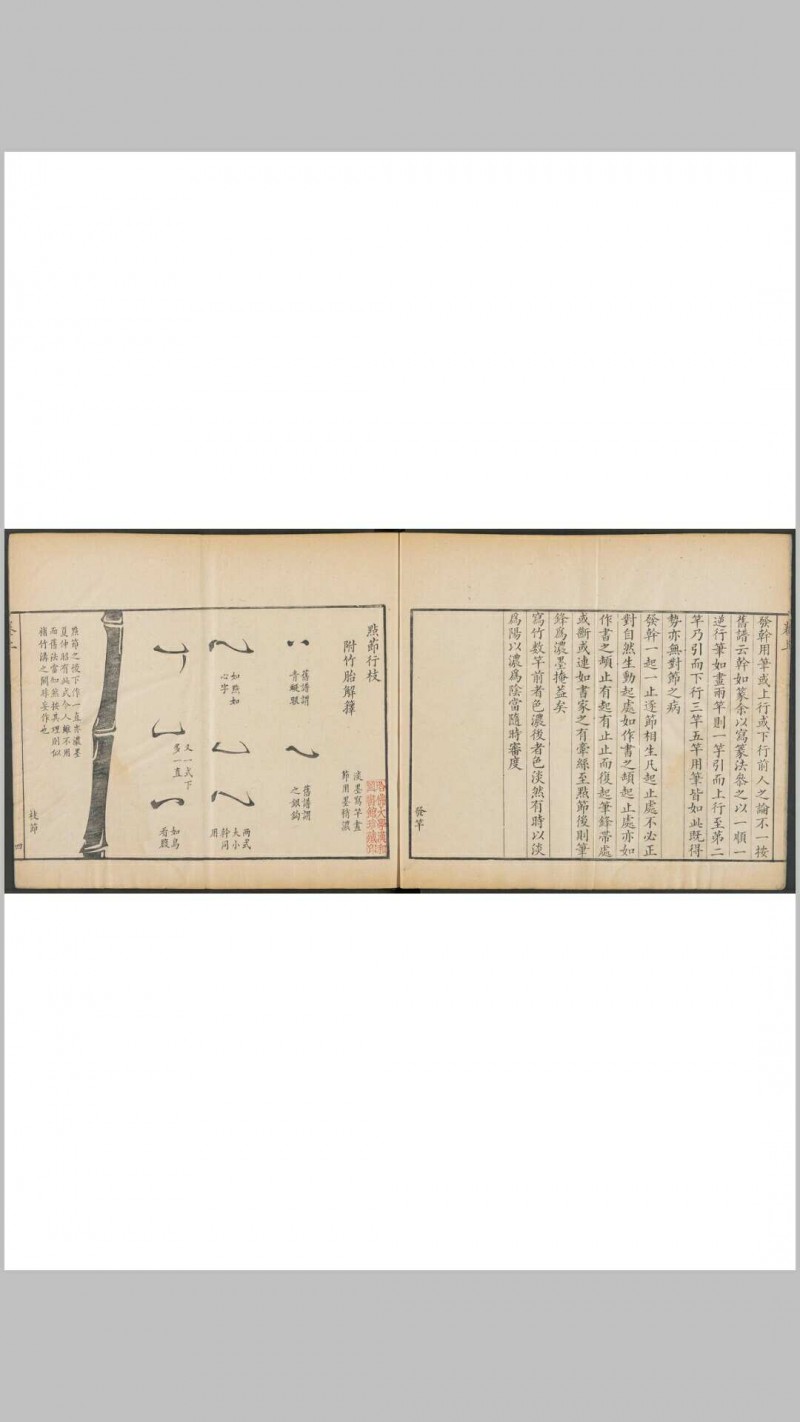 發幹用筆或上行或下行前人之論不一按
舊譜云幹如篆余以寫篆法參之以一順一
逆行筆如畫兩竿則一竿引而上行至第二
竿乃引而下行三竿五竿用筆皆如此既得
勢亦無對節之病
發幹一起一止逐節相生凡起止處不必正
對自然生動起處如作書之頓起止處亦如
作書之頓止有起有止止而復起筆鋒帶處
或斷或連如書家之有牽絲至點節後則筆
鋒爲濃墨掩葢矣
寫竹數竿前者色濃後者色淡然有時以淡
爲陽以濃爲陰當隨時審度
發竿
點節行枝
附竹胎解籜
淡墨寫竿畫
節用墨稍濃
舊譜謂
青蜓眼
舊譜謂
之銀鉤
如無如
心字
兩式
大小
幹同
用
又一式下
多一直
如烏
看腹
點節之後下作一直亦濃墨
夏仲昭有此式今人雖不用
而舊法當知然按其理則似
補竹溝之闕非妄作也
枝節
四